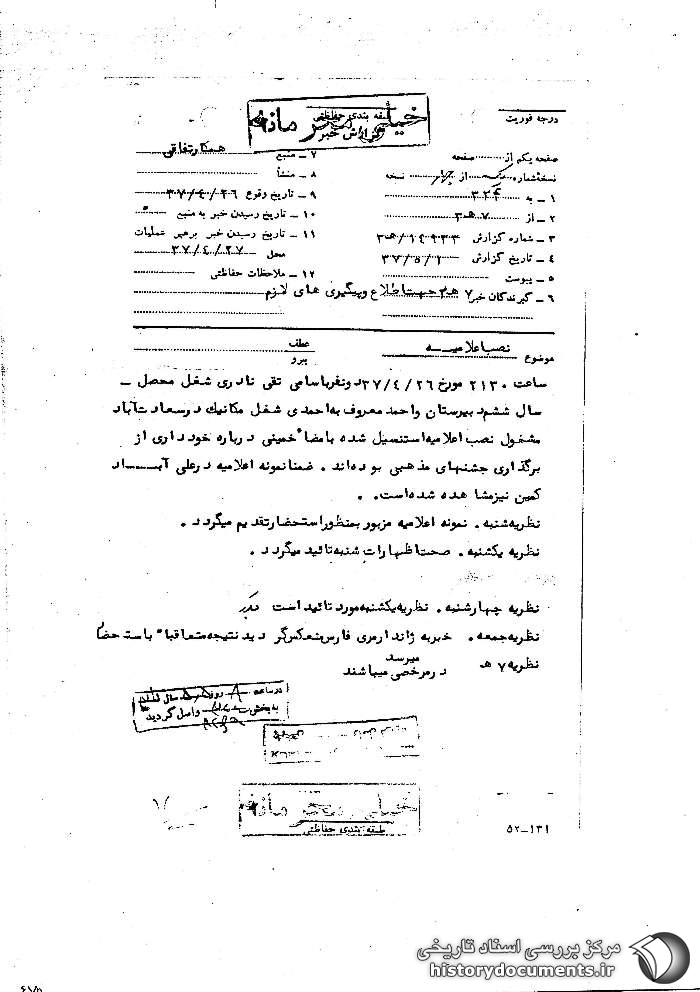 درجه فوریت
خیلی محرمانه
طبقه بندی حفاظتی
گزارش خبر
صفحه یکم از صفحه
نسخه شماره یک از چهار نسخه
۱ ـ به ۳۲۴
۲ ـ از ۷ ه‍ ۳
۳ ـ شماره گزارش ۱۴۹۳۳/ه‍ ۳
۴ ـ تاریخ گزارش ۳۷/۵/۱
۵ ـ پیوست
۶ ـ گیرندگان خبر ۷ ه‍ ۳ جهت اطلاع و پیگیری های لازم
۷ ـ منبع همکار تفاقی
۸ ـ منشأ
۹ ـ تاریخ وقوع ۳۷/۴/۲۶
۱۰ ـ تاریخ رسیدن خبر به منبع
۱۱ ـ تاریخ رسیدن خبر به رهبر عملیات
محل ۳۷/۴/۲۷
۱۲ ـ ملاحظات حفاظتی
موضوع نصب اعلامیـــه
عطف
پیرو
ساعت ۲۱۳۰ مورخ ۳۷/۴/۲۶ دو نفر باسامی تقی نادری شغل محصل ـ
سال ششم دبیرستان و احمد معروف به احمدی شغل مکانیک در سعادت آباد
مشغول نصب اعلامیه استنسیل شده بامضاء خمینی درباره خودداری از
برگذاری جشنهای مذهبی بوده‌اند . ضمنا نمونه اعلامیه در علی آبـــاد
کمین نیز مشاهده شده است .
نظریه شنبه . نمونه اعلامیه مزبور بمنظور استحضار تقدیم میگردد .
نظریه یکشنبه . صحت اظهارات شنبه تائید میگردد .
نظریه چهارشنبه . نظریه یکشنبه مورد تائید است
نظریه جمعه . خبر به ژاندارمری فارس منعکس گردید نتیجه متعاقبا" باستحضار
میرسد
نظریه ۷ ه‍ در مرخصی میباشند
در ساعت ۸ روز سال
به بخش واصل گردید
خیلی محرمانه
طبقه بندی حفاظتی
۵۲ـ۱۳۱
مرکز بررسی اسناد تاریخی
historydocuments.ir